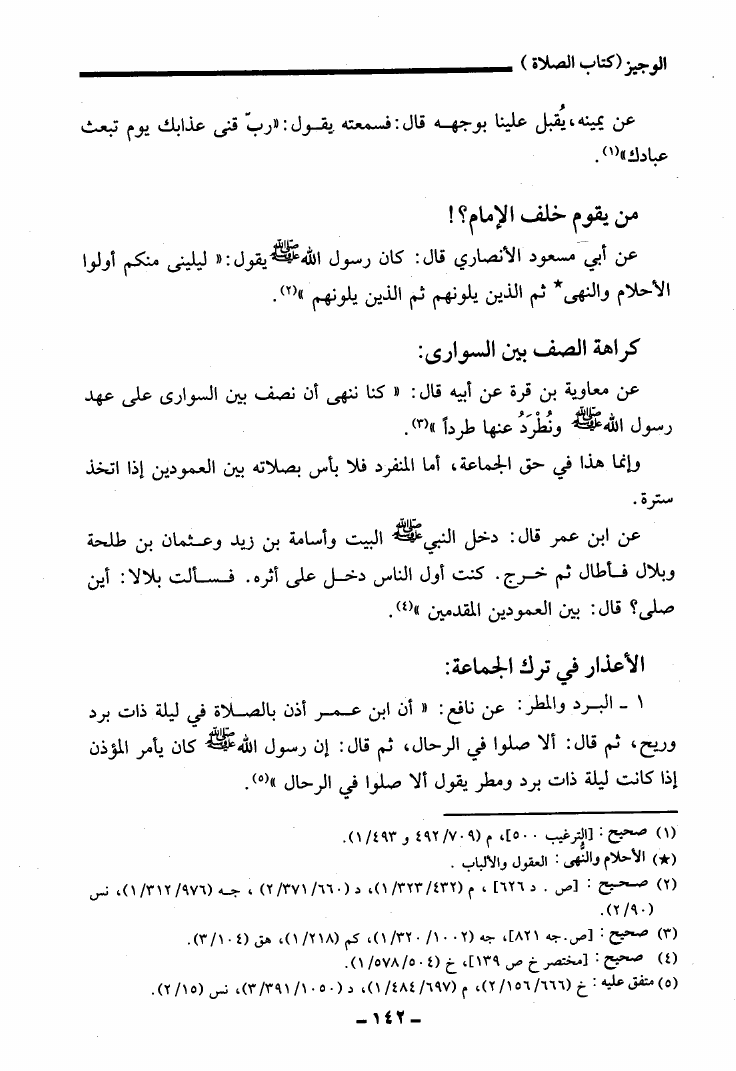 الوجيز (كتاب الصلاة )
عن يمينه، يُقبل علينا بوجهه قال: فسمعته يقول: «ربّ قنى عذابك يوم تبعث
عبادك»(١).
من يقوم خلف الإمام؟!
عن أبي مسعود الأنصاري قال: كان رسول الله ﷺ يقول: « ليلينى منكم أولوا
الأحلام والنهى* ثم الذين يلونهم ثم الذين يلونهم »(٢).
كراهة الصف بين السوارى:
عن معاوية بن قرة عن أبيه قال: « كنا ننهى أن نصف بين السوارى على عهد
رسول الله ﷺ ونُطْرَدُ عنها طرداً »(٣).
وإنما هذا في حق الجماعة، أما المنفرد فلا بأس بصلاته بين العمودين إذا اتخذ
سترة.
عن ابن عمر قال: دخل النبي ﷺ البيت وأسامة بن زيد وعثمان بن طلحة
وبلال فأطال ثم خرج. كنت أول الناس دخل على أثره. فسألت بلالا: أين
صلى؟ قال: بين العمودين المقدمين »(٤).
الأعذار في ترك الجماعة:
١ - البرد والمطر: عن نافع: « أن ابن عمر أذن بالصلاة في ليلة ذات برد
وريح، ثم قال: ألا صلوا في الرحال، ثم قال: إن رسول الله ﷺ كان يأمر المؤذن
إذا كانت ليلة ذات برد ومطر يقول ألا صلوا في الرحال »(٥).
(١) صحيح: [الترغيب ٥٠٠]، م (٤٩٢/٧٠٩ و ١/٤٩٣).
(★) الأحلام والنُّهى: العقول والألباب .
(٢) صحيح : [ص . د ٦٢٦] ، م (١/٣٢٣/٤٣٢)، د (٢/٣٧١/٦٦٠) ، جه (١/٣١٢/٩٧٦)، نس
(٢/٩٠).
(٣) صحيح : [ص.جه ٨٢١]، جه (١/٣٢٠/١٠٠٢)، كم (١/٢١٨)، هق (٣/١٠٤).
(٤) صحيح : [مختصر خ ص ١٣٩]، خ (١/٥٧٨/٥٠٤).
(٥) متفق عليه : خ (٢/١٥٦/٦٦٦)، م (١/٤٨٤/٦٩٧)، د (٣/٣٩١/١٠٥٠)، نس (٢/١٥).
- ١٤٢ -